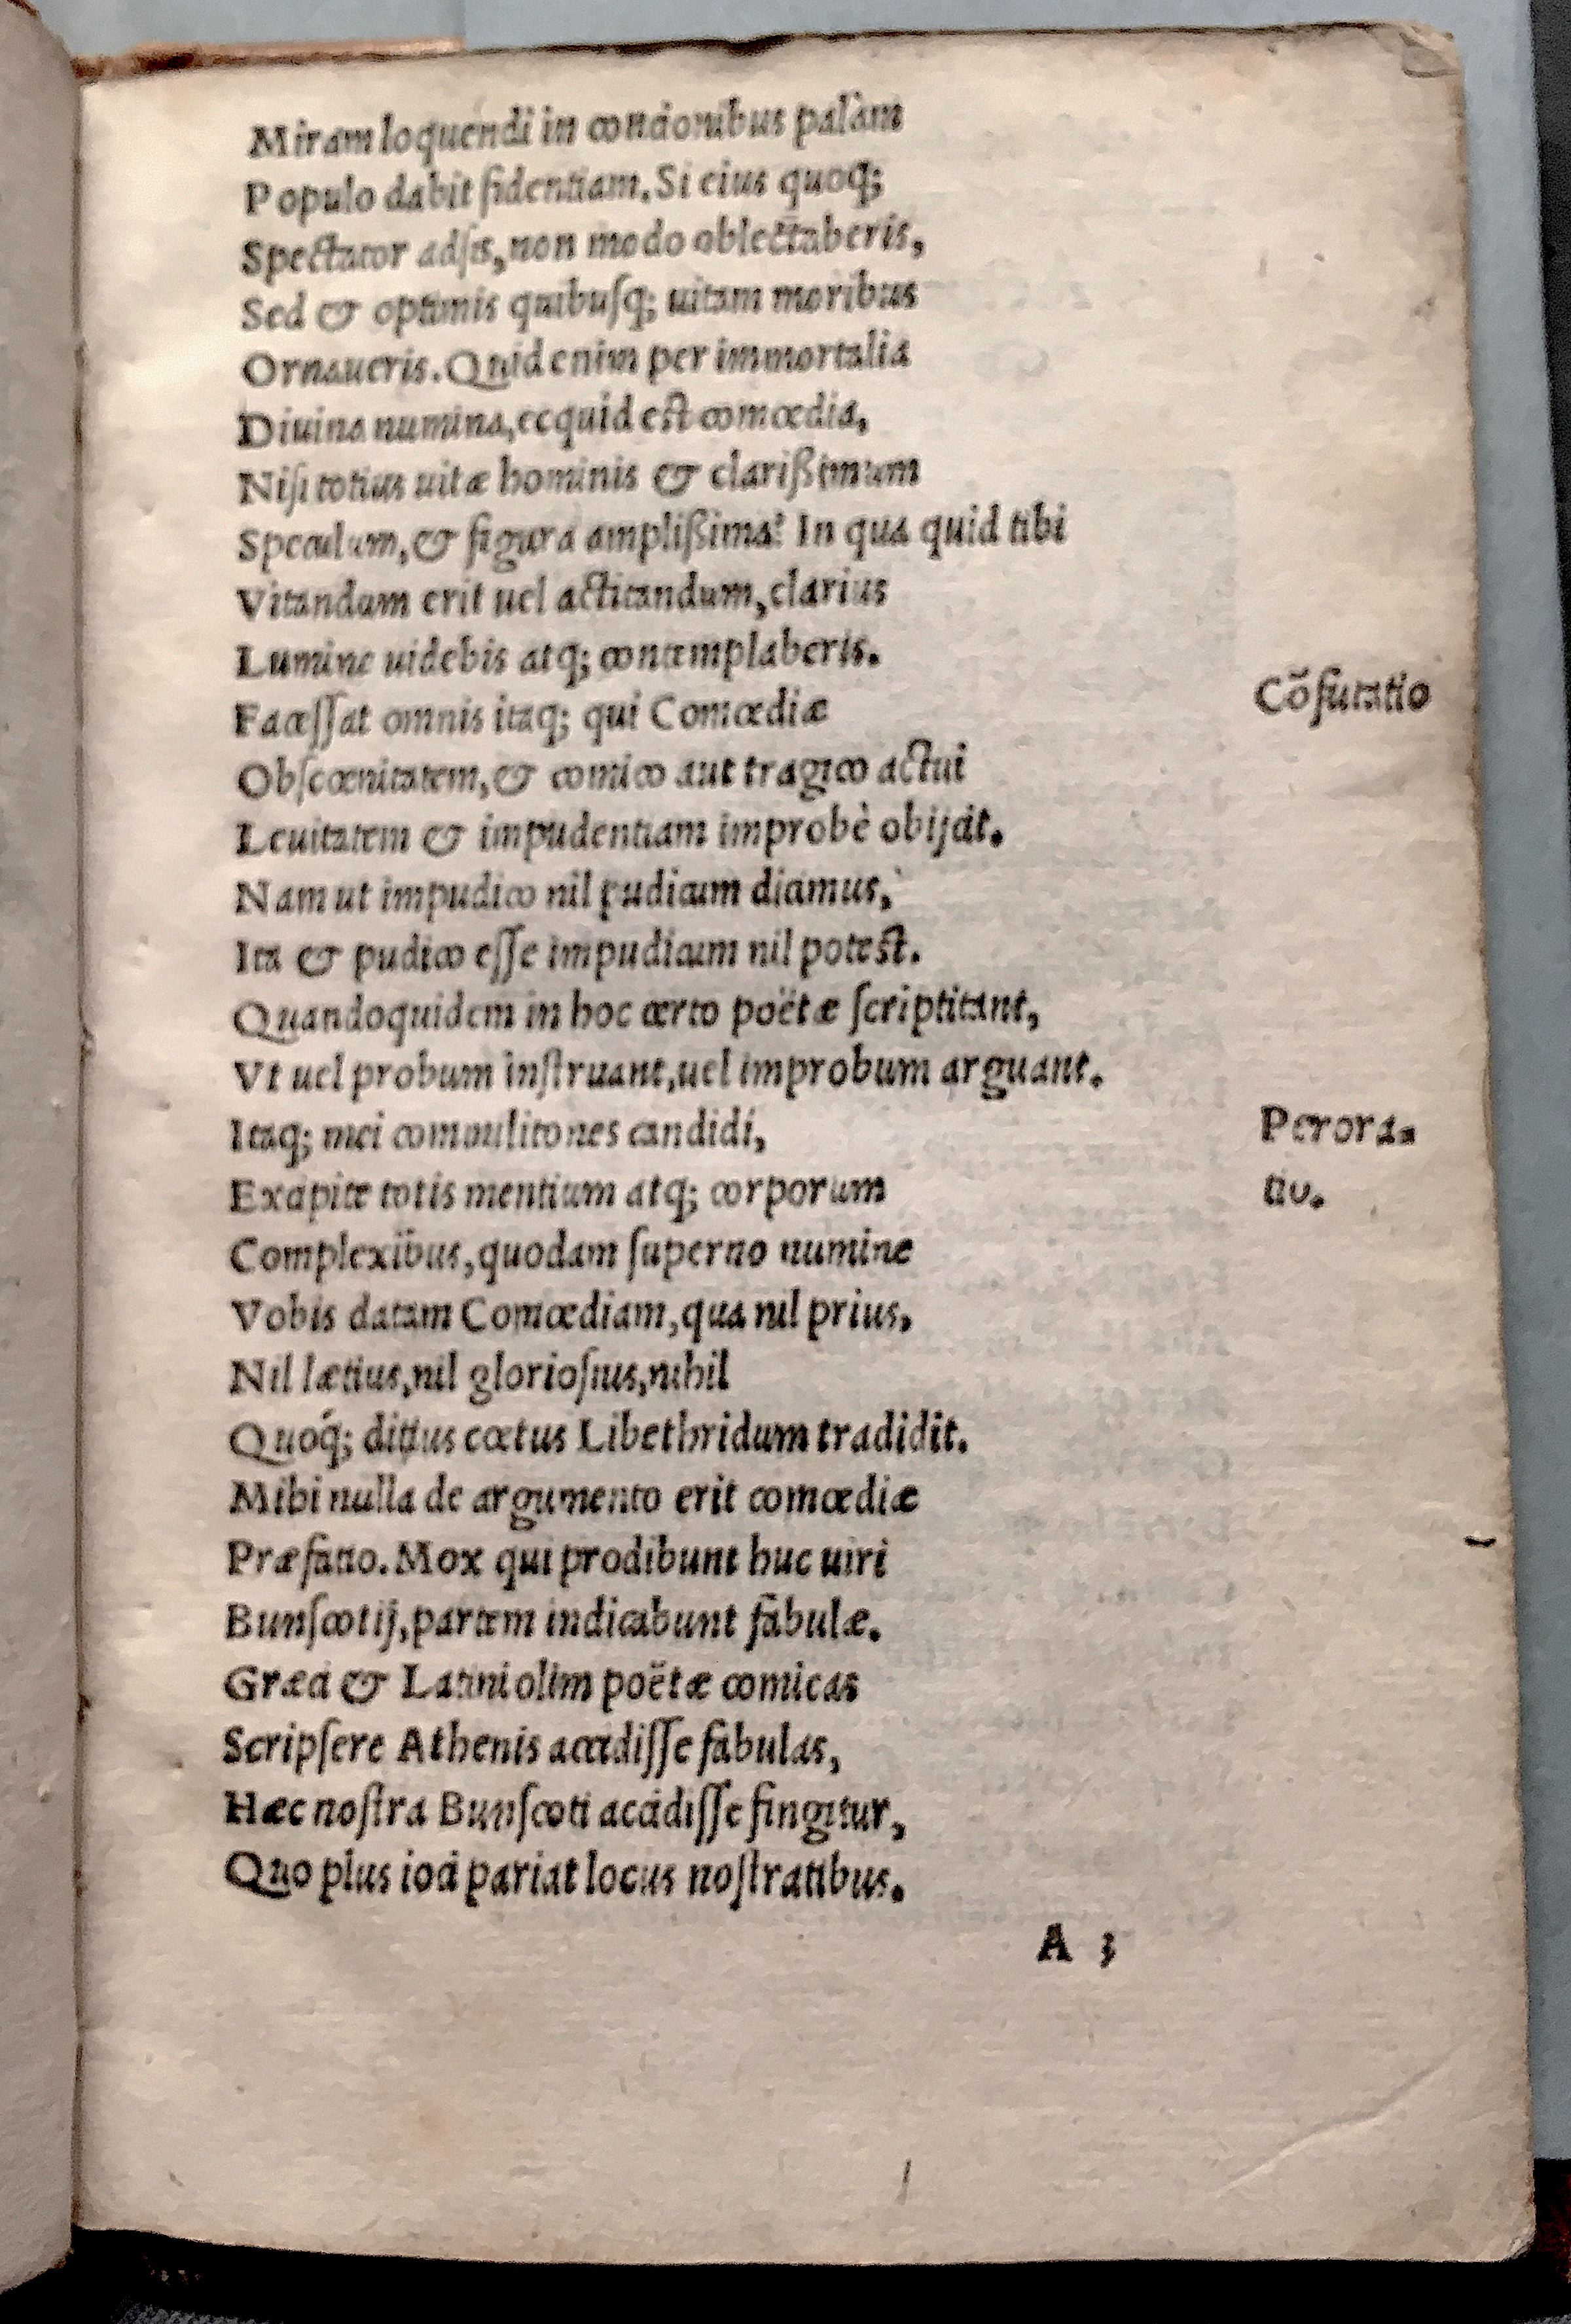 Miram loquendi in concionibus palàm
Populo dabit fidentiam. Si eius quoq;
Spectator adſis, non modo oblectaberis,
Sed & optimis quibuſq; uitam moribus
Ornaueris. Quid enim per immortalia
Diuina numina, ecquid eſt comœdia,
Niſi totius uitæ hominis & clarißimum
Speculum, & figura amplißima? In qua quid tibi
Vitandum erit uel actitandum, clarius
Lumine uidebis atq; contemplaberis.
Faceſſat omnis itaq; qui Comœdiæ
Cõfutatio
Obſcœnitatem, & comico aut tragico actui
Leuitatem & impudentiam improbè obijcit.
Nam ut impudico nil pudicum dicimus,
Ita & pudico eſſe impudicum nil poteſt.
Quandoquidem in hoc certo poëtæ ſcriptitant,
Vt uel probum inſtruant, uel improbum arguant.
Itaq; mei commilitones candidi,
Perora-
Excipite totis mentium atq; corporum
tio.
Complexibus, quodam ſuperno numine
Vobis datam Comœdiam, qua nil prius,
Nil lætius, nil glorioſius, nihil
Quóq; ditius cœtus Libethridum tradidit.
Mihi nulla de argumento erit comœdiæ
Præfatio. Mox qui prodibunt huc uiri
Bunſcotij, partem indicabunt fabulæ.
Græci & Latini olim poëtæ comicas
Scripſere Athenis accidiſſe fabulas,
Hæc noſtra Bunſcoti accidiſſe fingitur,
Quo plus ioci pariat locus noſtratibus.
A 3